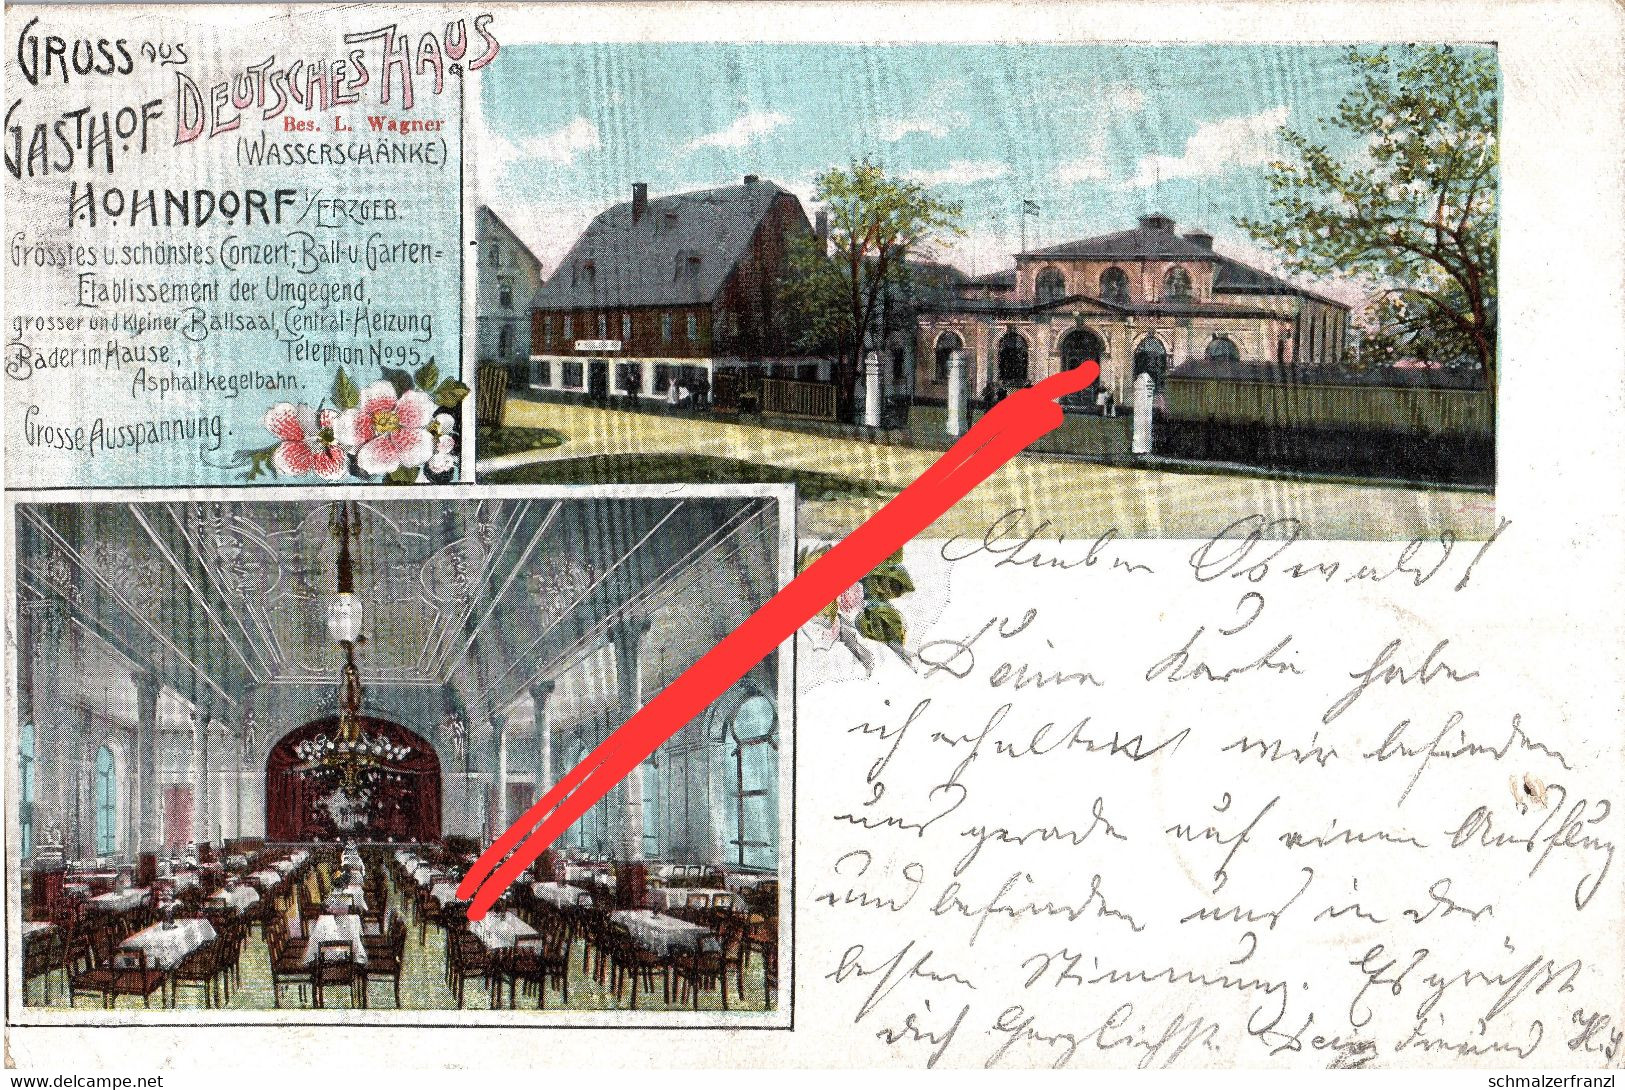 GRUSS AUS
DEUTSCHES HAUS
GASTHOF
Bes. L. Wagner
(WASSERSCHÄNKE)
HOHNDORF I/ERZGEB.
Grösstes u. schönstes Conzert-, Ball- u. Garten=
Etablissement der Umgegend,
grosser und kleiner Ballsaal, Central-Heizung
Bäder im Hause, Telephon No 95.
Asphaltkegelbahn.
Grosse Ausspannung.
Lieber Oswald!
Deine Karte habe
ich erhalten wir befinden
uns gerade auf einen Ausflug
und befinden uns in der
besten Stimmung. Es grüßt
dich herzlichst. Dein Freund
www.delcampe.net
schmalzerfranzl